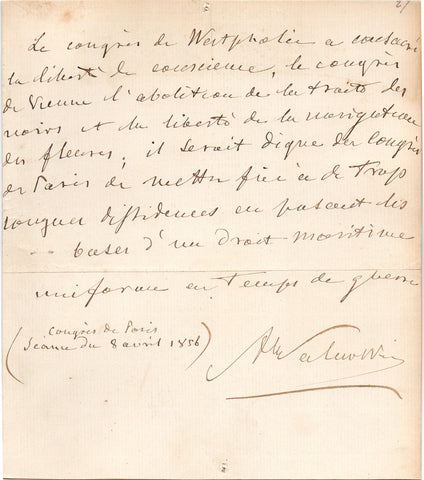 27
Le congrès de Westphalie a consacré
la liberté de conscience, le congrès
de Vienne l'abolition de la traite des
noirs et la liberté de la navigation
des fleuves; il serait digne du Congrès
de Paris de mettre fin à de trop
longues dissidences en posant les
bases d'un droit maritime
uniforme en temps de guerre
(Congrès de Paris
Séance du 8 avril 1856)
A Walewski